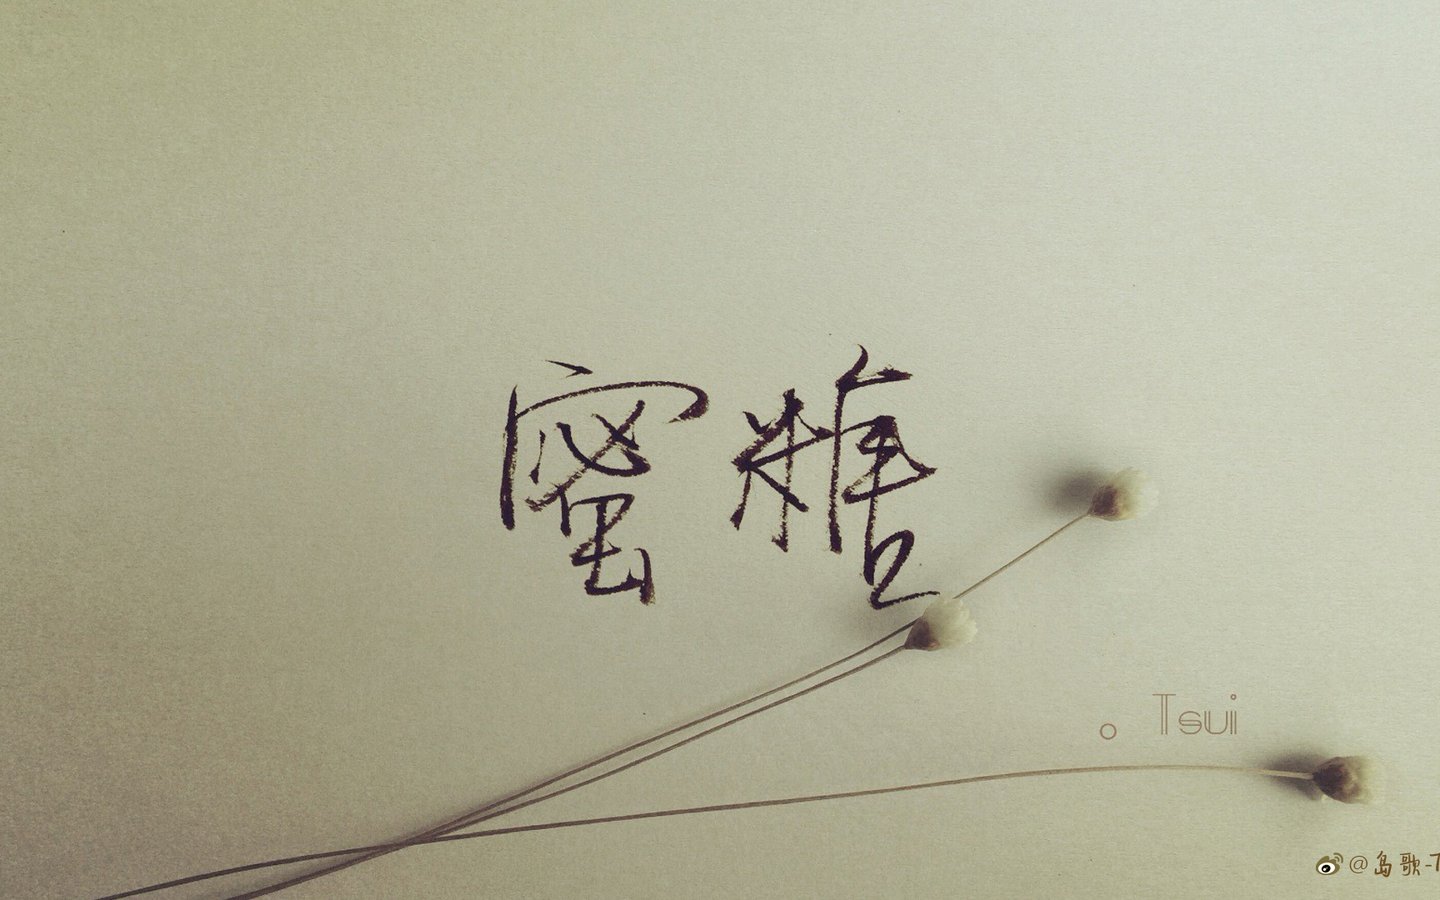 蜜糖
。Tsui
@岛歌-T